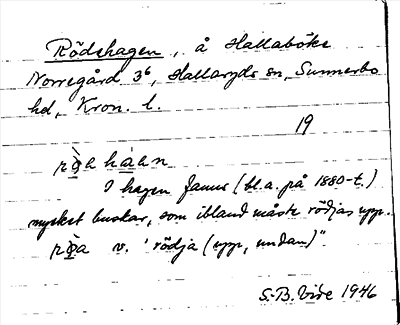 Rödshagen, å Hallaböke
Norregård 3⁶, Hallaryds sn, Sunnerbo
hd, Kron. l.
19
hagan
I hagen fanns (bl.a. på 1880-t.)
mycket buskar, som ibland måste rödjas upp.
v. 'rödja (upp, undan)".
S.-B. Vide 1946